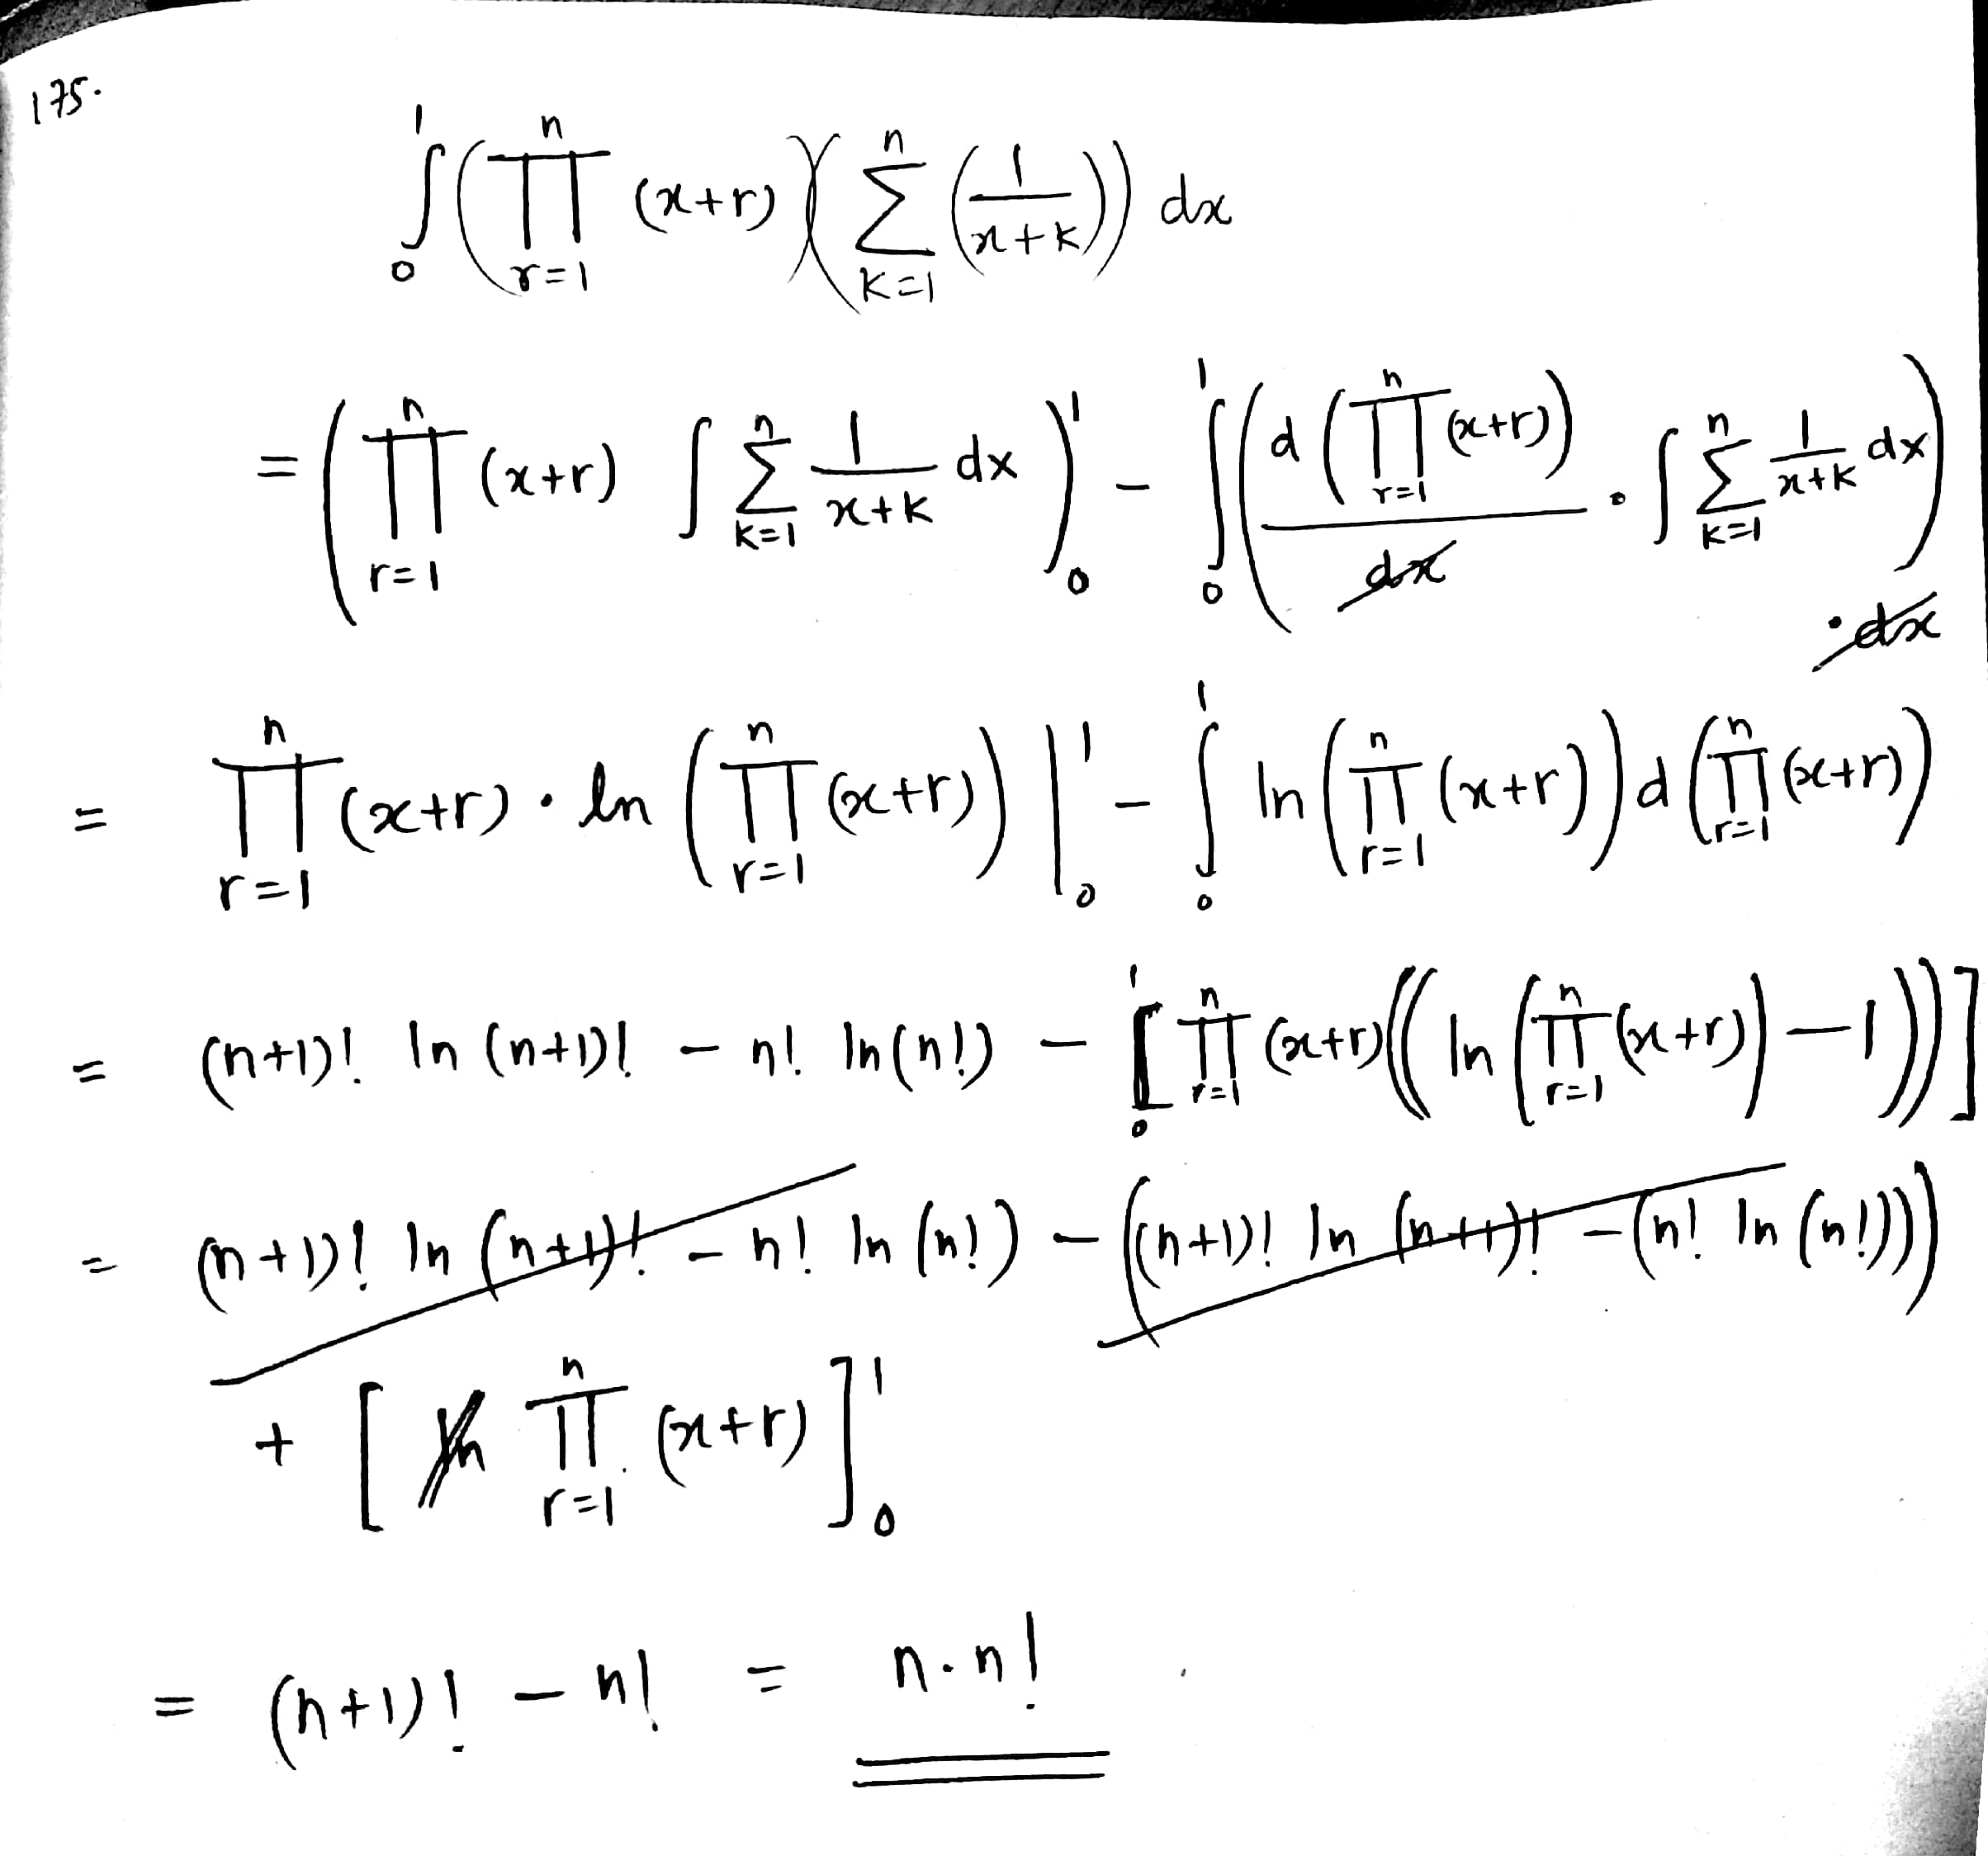 175.
$\int_0^1 \left( \prod_{r=1}^{n} (x+r) \right) \left( \sum_{k=1}^{n} \left( \frac{1}{x+k} \right) \right) dx$
$= \left( \prod_{r=1}^{n} (x+r) \int \sum_{k=1}^{n} \frac{1}{x+k} dx \right)_0^1 - \int_0^1 \left( \frac{d \left( \prod_{r=1}^{n} (x+r) \right)}{\cancel{dx}} \cdot \int \sum_{k=1}^{n} \frac{1}{x+k} dx \right) \cdot \cancel{dx}$
$= \prod_{r=1}^{n} (x+r) \cdot \ln \left( \prod_{r=1}^{n} (x+r) \right) \Big|_0^1 - \int_0^1 \ln \left( \prod_{r=1}^{n} (x+r) \right) d \left( \prod_{r=1}^{n} (x+r) \right)$
$= (n+1)! \ln (n+1)! - n! \ln (n!) - \left[_0^1 \prod_{r=1}^{n} (x+r) \left( \left( \ln \left( \prod_{r=1}^{n} (x+r) \right) - 1 \right) \right) \right]$
$= \cancel{(n+1)! \ln (n+1)! - n! \ln (n!)} - \cancel{\left( (n+1)! \ln (n+1)! - (n! \ln (n!)) \right)}$
$+ \left[ \prod_{r=1}^{n} (x+r) \right]_0^1$
$= (n+1)! - n! = n \cdot n!$